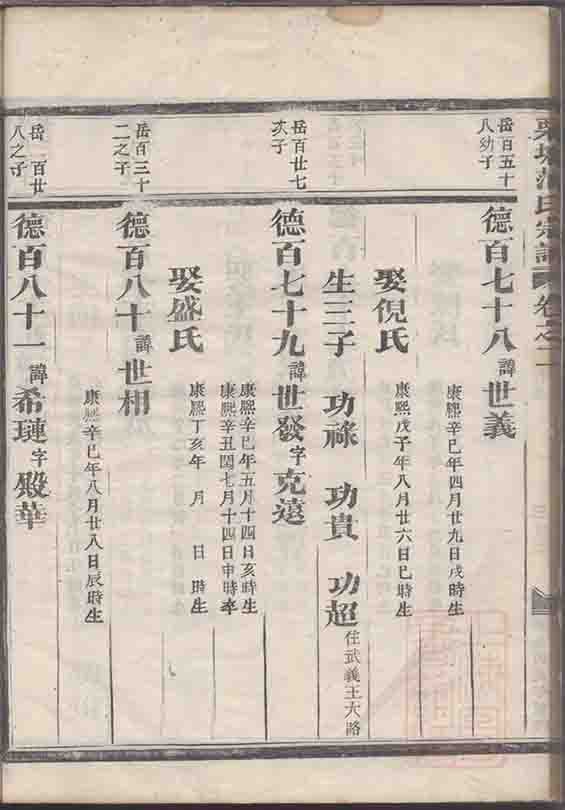 氏宗譜 卷之二
岳百五十
八幼子
德百七十八 諱 世義
康熙辛巳年四月廿九日戌時生
娶倪氏
康熙戊子年八月廿六日巳時生
生三子 功祿 功貴 功超 住武義王大路
岳百廿七
次子
德百七十九 諱 世發 字 克遠
康熙辛巳年五月十四日亥時生
康熙辛丑閏七月十四日申時卒
娶盛氏
康熙丁亥年 月 日 時生
岳百三十
二之子
德百八十 諱 世相
康熙辛巳年八月廿八日辰時生
岳一百廿
八之子
德百八十一 諱 希璉 字 殿華